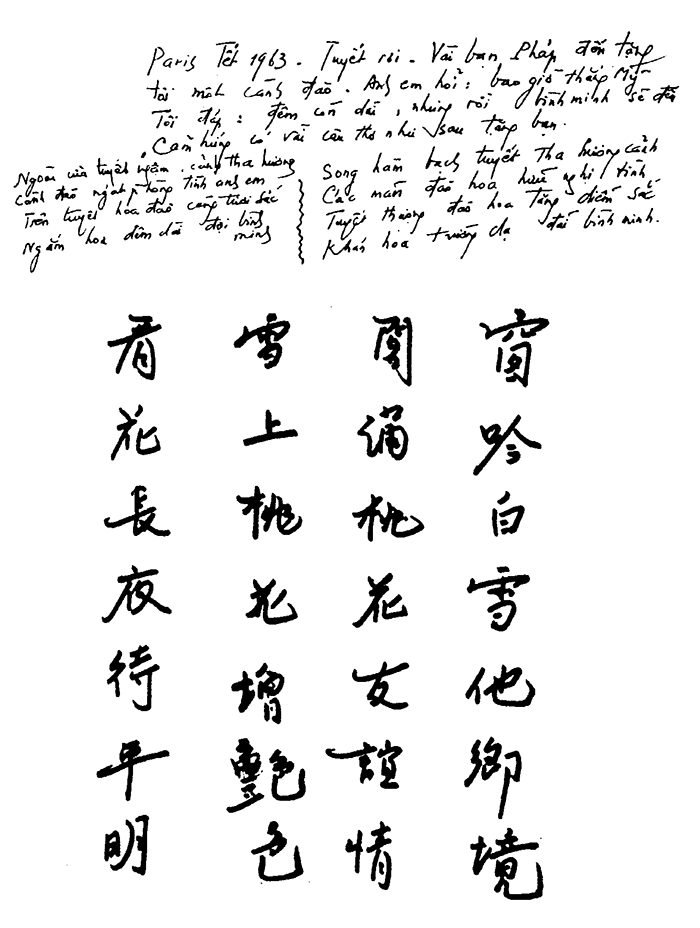 Paris Tết 1963 - Tuyết rơi - Vài bạn Pháp đến tặng
tôi một cành đào. Anh em hỏi: bao giờ thắng Mỹ
Tôi đáp: đêm còn dài, nhưng rồi bình minh sẽ đến
Cảm hứng có vài câu thơ như sau tặng bạn.
Ngoài cửa tuyết ngậm cảnh tha hương
Cành đào ngát nồng tình anh em
Trên tuyết hoa đào càng tươi sắc
Ngắm hoa đêm dài đợi bình minh
Song hàm bạch tuyết tha hương cảnh
Các mãn đào hoa hữu nghị tình
Tuyết thượng đào hoa tăng diễm sắc
Khán hoa trường dạ đãi bình minh.
窗吟白雪他鄉境
閣滿桃花友誼情
雪上桃花增艷色
看花長夜待平明